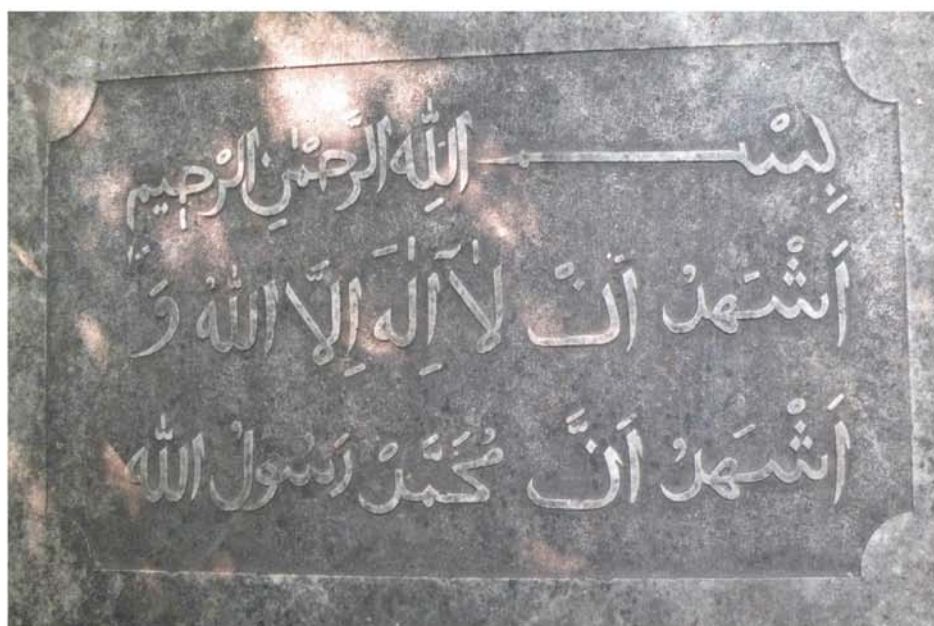 بِسْمِ اللهِ الرَّحْمٰنِ الرَّحِيْمِ
اَشْهَدُ اَنْ لَآ اِلٰهَ اِلَّا اللهُ وَ
اَشْهَدُ اَنَّ مُحَمَّدْ رَسُولُ الله